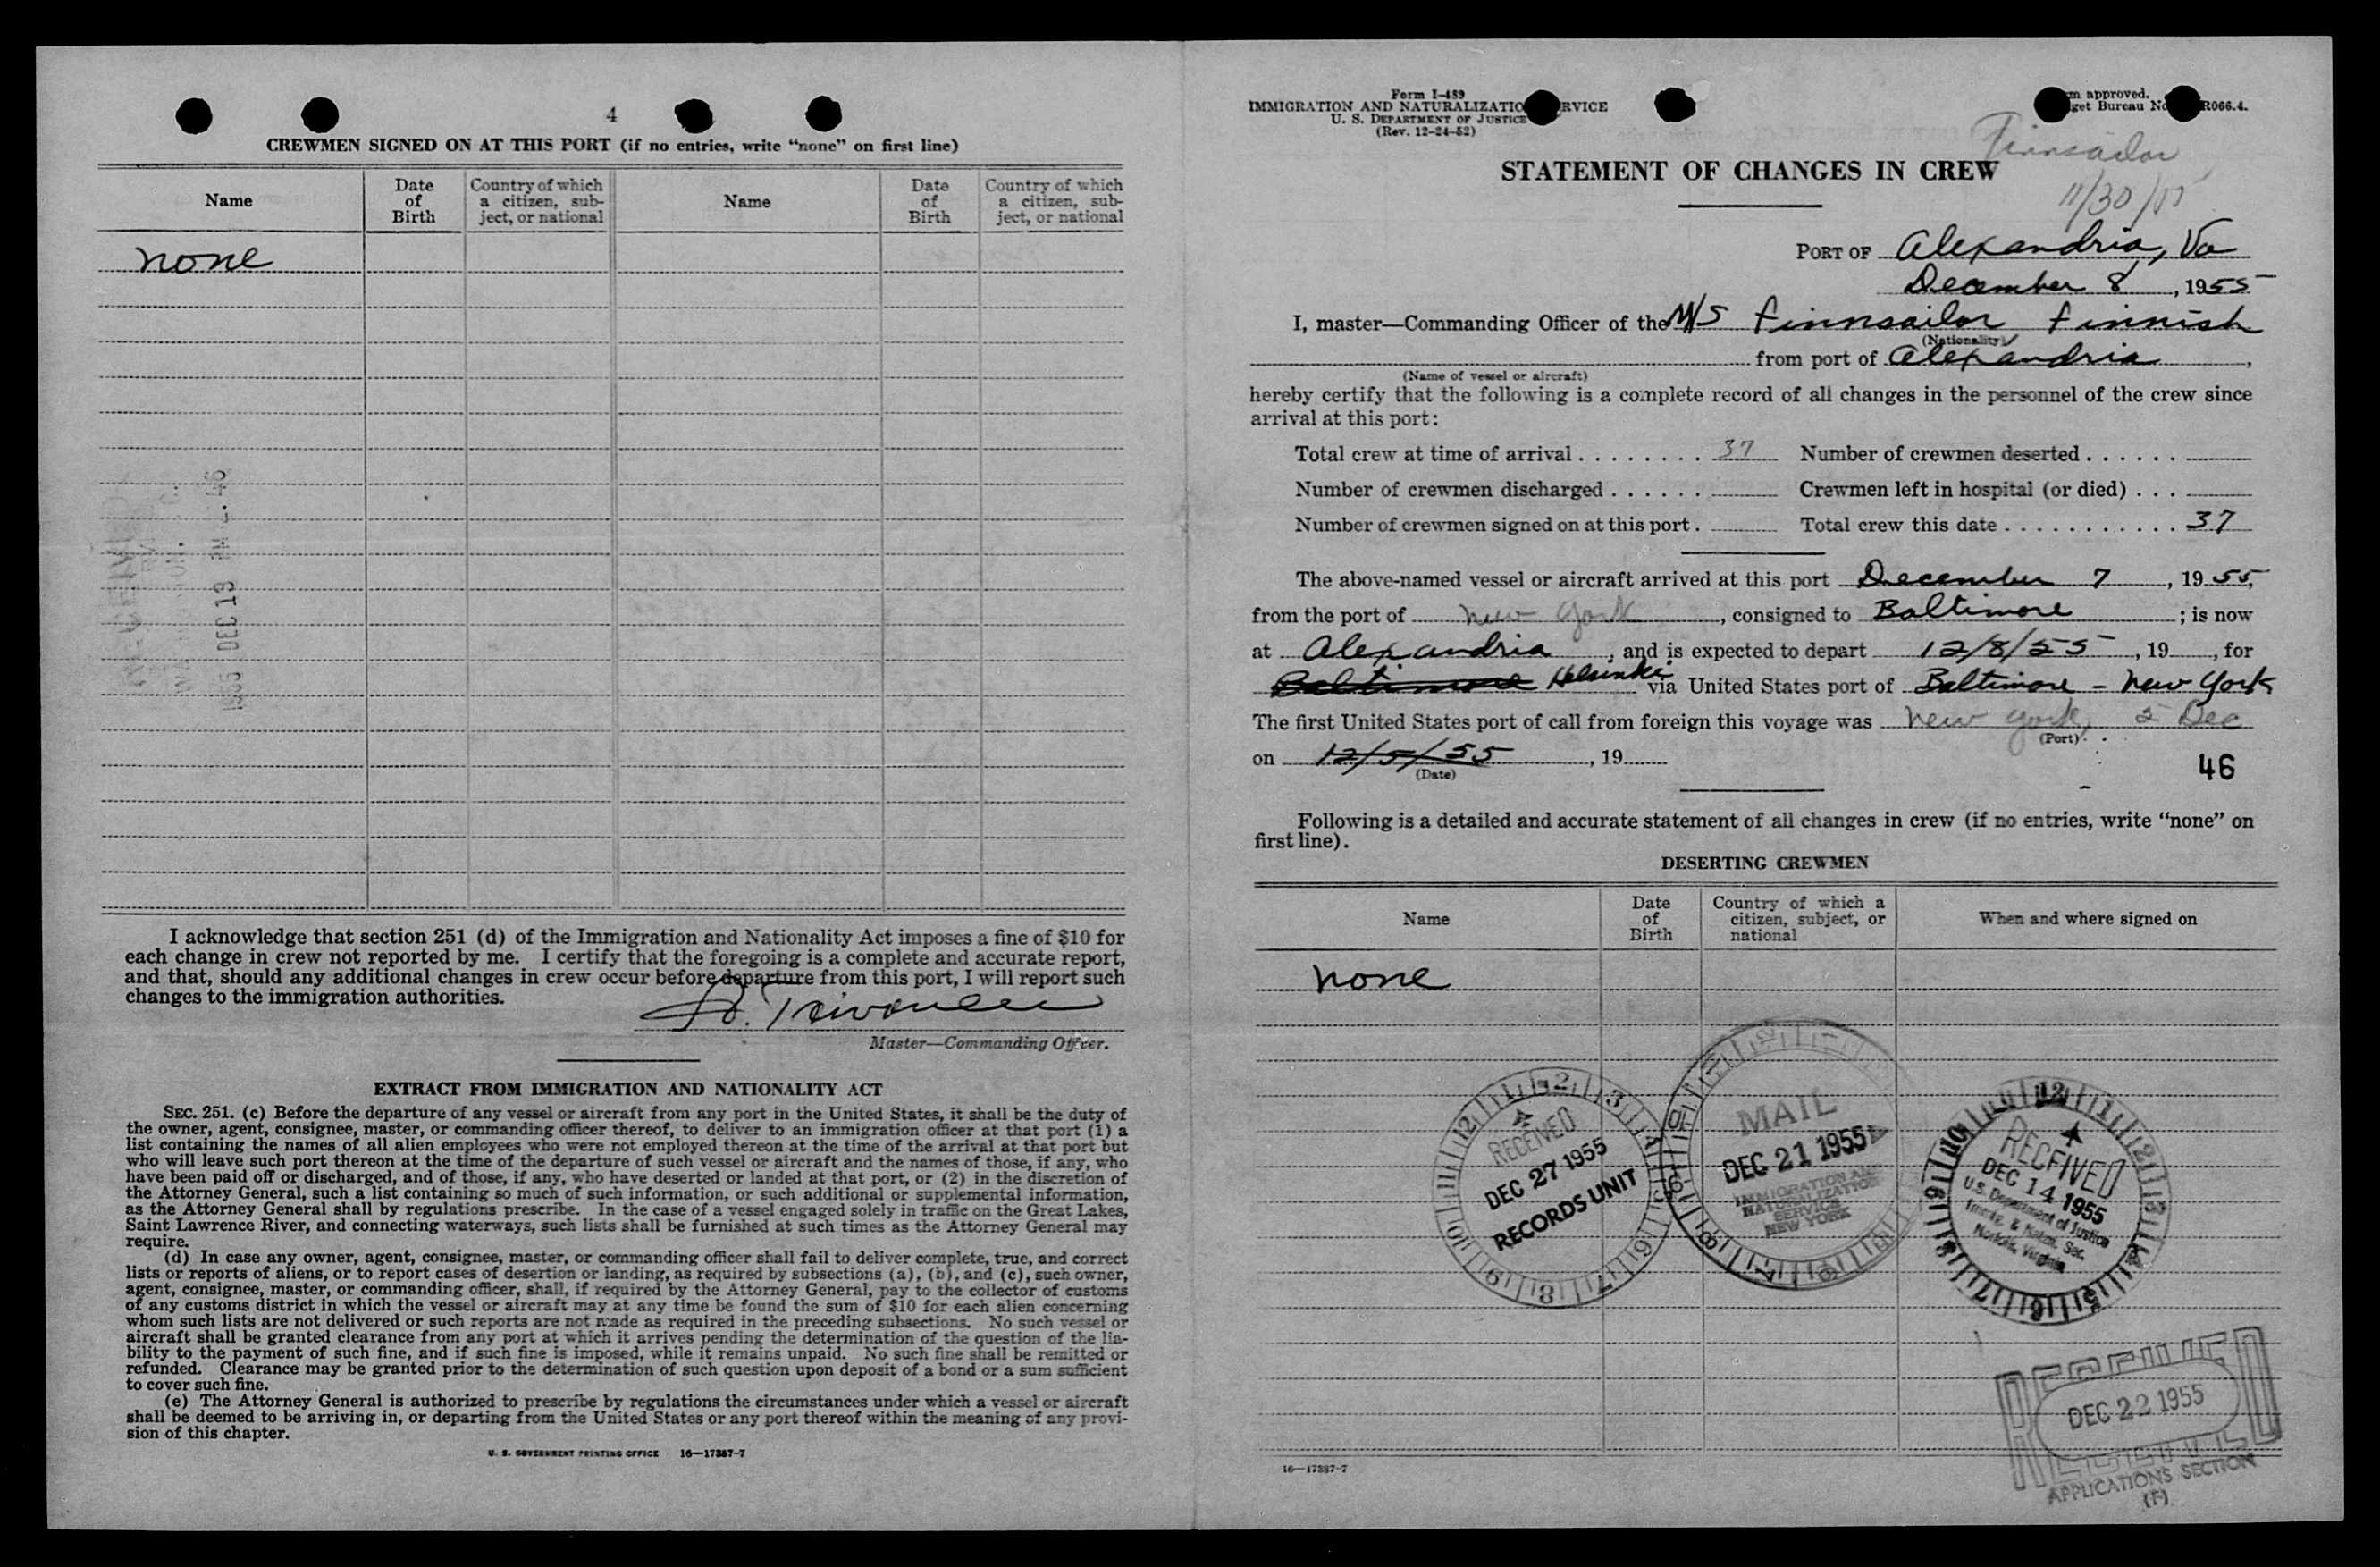 4
CREWMEN SIGNED ON AT THIS PORT (if no entries, write “none” on first line)
Name
Date of Birth
Country of which a citizen, subject, or national
Name
Date of Birth
Country of which a citizen, subject, or national
none
1955 DEC 13
46
I acknowledge that section 251 (d) of the Immigration and Nationality Act imposes a fine of $10 for
each change in crew not reported by me. I certify that the foregoing is a complete and accurate report,
and that, should any additional changes in crew occur before departure from this port, I will report such
changes to the immigration authorities.
Master—Commanding Officer.
EXTRACT FROM IMMIGRATION AND NATIONALITY ACT
SEC. 251. (c) Before the departure of any vessel or aircraft from any port in the United States, it shall be the duty of
the owner, agent, consignee, master, or commanding officer thereof, to deliver to an immigration officer at that port (1) a
list containing the names of all alien employees who were not employed thereon at the time of the arrival at that port but
who will leave such port thereon at the time of the departure of such vessel or aircraft and the names of those, if any, who
have been paid off or discharged, and of those, if any, who have deserted or landed at that port, or (2) in the discretion of
the Attorney General, such a list containing so much of such information, or such additional or supplemental information,
as the Attorney General shall by regulations prescribe. In the case of a vessel engaged solely in traffic on the Great Lakes,
Saint Lawrence River, and connecting waterways, such lists shall be furnished at such times as the Attorney General may
require.
(d) In case any owner, agent, consignee, master, or commanding officer shall fail to deliver complete, true, and correct
lists or reports of aliens, or to report cases of desertion or landing, as required by subsections (a), (b), and (c), such owner,
agent, consignee, master, or commanding officer, shall, if required by the Attorney General, pay to the collector of customs
of any customs district in which the vessel or aircraft may at any time be found the sum of $10 for each alien concerning
whom such lists are not delivered or such reports are not made as required in the preceding subsections. No such vessel or
aircraft shall be granted clearance from any port at which it arrives pending the determination of the question of the lia-
bility to the payment of such fine, and if such fine is imposed, while it remains unpaid. No such fine shall be remitted or
refunded. Clearance may be granted prior to the determination of such question upon deposit of a bond or a sum sufficient
to cover such fine.
(e) The Attorney General is authorized to prescribe by regulations the circumstances under which a vessel or aircraft
shall be deemed to be arriving in, or departing from the United States or any port thereof within the meaning of any provi-
sion of this chapter.
U. S. GOVERNMENT PRINTING OFFICE 16—17387-7
Form I-489
IMMIGRATION AND NATURALIZATIO RVICE
U. S. DEPARTMENT OF JUSTICE
(Rev. 12-24-52)
m approved.
get Bureau No R066.4.
Finnsailor
11/30/55
STATEMENT OF CHANGES IN CREW
PORT OF Alexandria, Va
December 8, 1955
I, master—Commanding Officer of the M/S Finnsailor, Finnish
(Nationality)
from port of Alexandria,
(Name of vessel or aircraft)
hereby certify that the following is a complete record of all changes in the personnel of the crew since
arrival at this port:
Total crew at time of arrival . . . . . . . . 37 Number of crewmen deserted . . . . . .
Number of crewmen discharged . . . . . . Crewmen left in hospital (or died) . . .
Number of crewmen signed on at this port . Total crew this date . . . . . . . . . . . . 37
The above-named vessel or aircraft arrived at this port December 7, 1955,
from the port of New York, consigned to Baltimore; is now
at Alexandria, and is expected to depart 12/8/55, 19, for
Baltimore Helsinki via United States port of Baltimore - New York
The first United States port of call from foreign this voyage was New York, 5 Dec
(Port)
on 12/5/55, 19
(Date)
46
Following is a detailed and accurate statement of all changes in crew (if no entries, write “none” on
first line).
DESERTING CREWMEN
Name
Date of Birth
Country of which a citizen, subject, or national
When and where signed on
none
RECEIVED
DEC 27 1955
RECORDS UNIT
MAIL
DEC 21 1955
IMMIGRATION AND
NATURALIZATION
SERVICE
NEW YORK
RECEIVED
DEC 14 1955
U.S. Department of Justice
Immig. & Natzn. Ser.
Norfolk, Virginia
RECEIVED
DEC 22 1955
RECEIVED
APPLICATIONS SECTION
(F)
16—17387-7